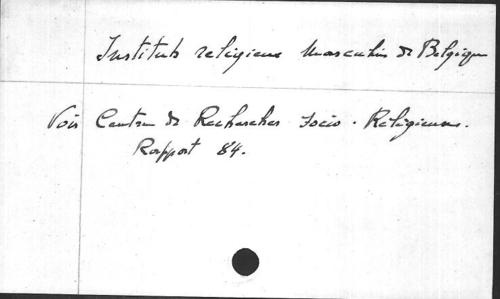 Instituts religieux masculins de Belgique
Voir Centre de Recherches Socio-Religieuses.
Rapport 84.